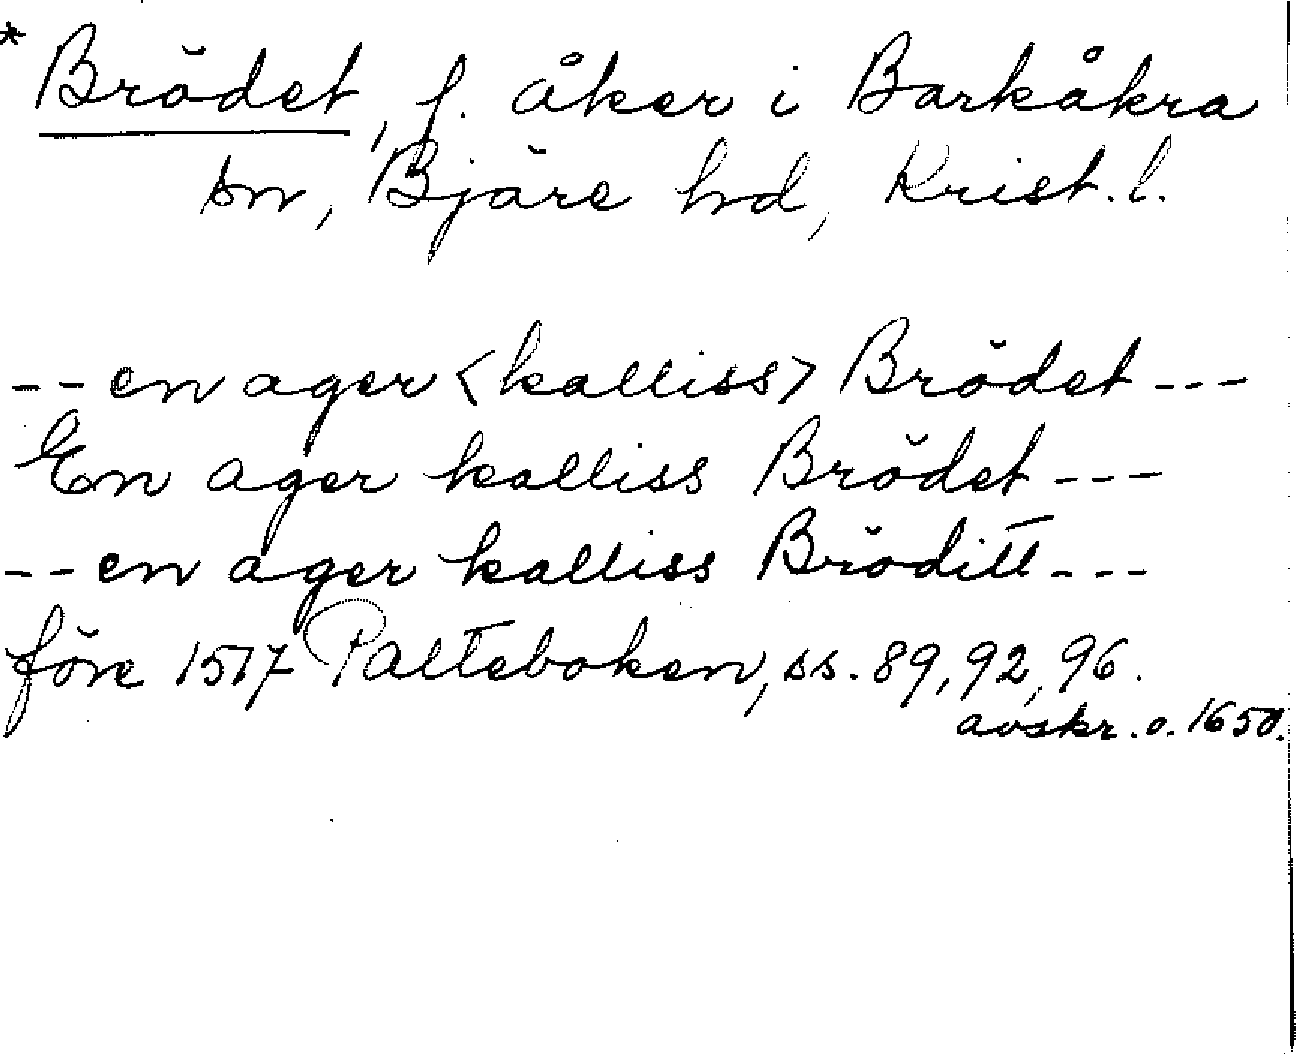 * Brödet, f. åker i Barkåkra
sn, Bjäre hd, Krist. l.
-- en ager <kalliss> Brödet ---
En ager kalliss Brödet ---
-- en ager kalliss Bröditt ---
före 1517 Palteboken, ss. 89, 92, 96.
avskr. o. 1650.